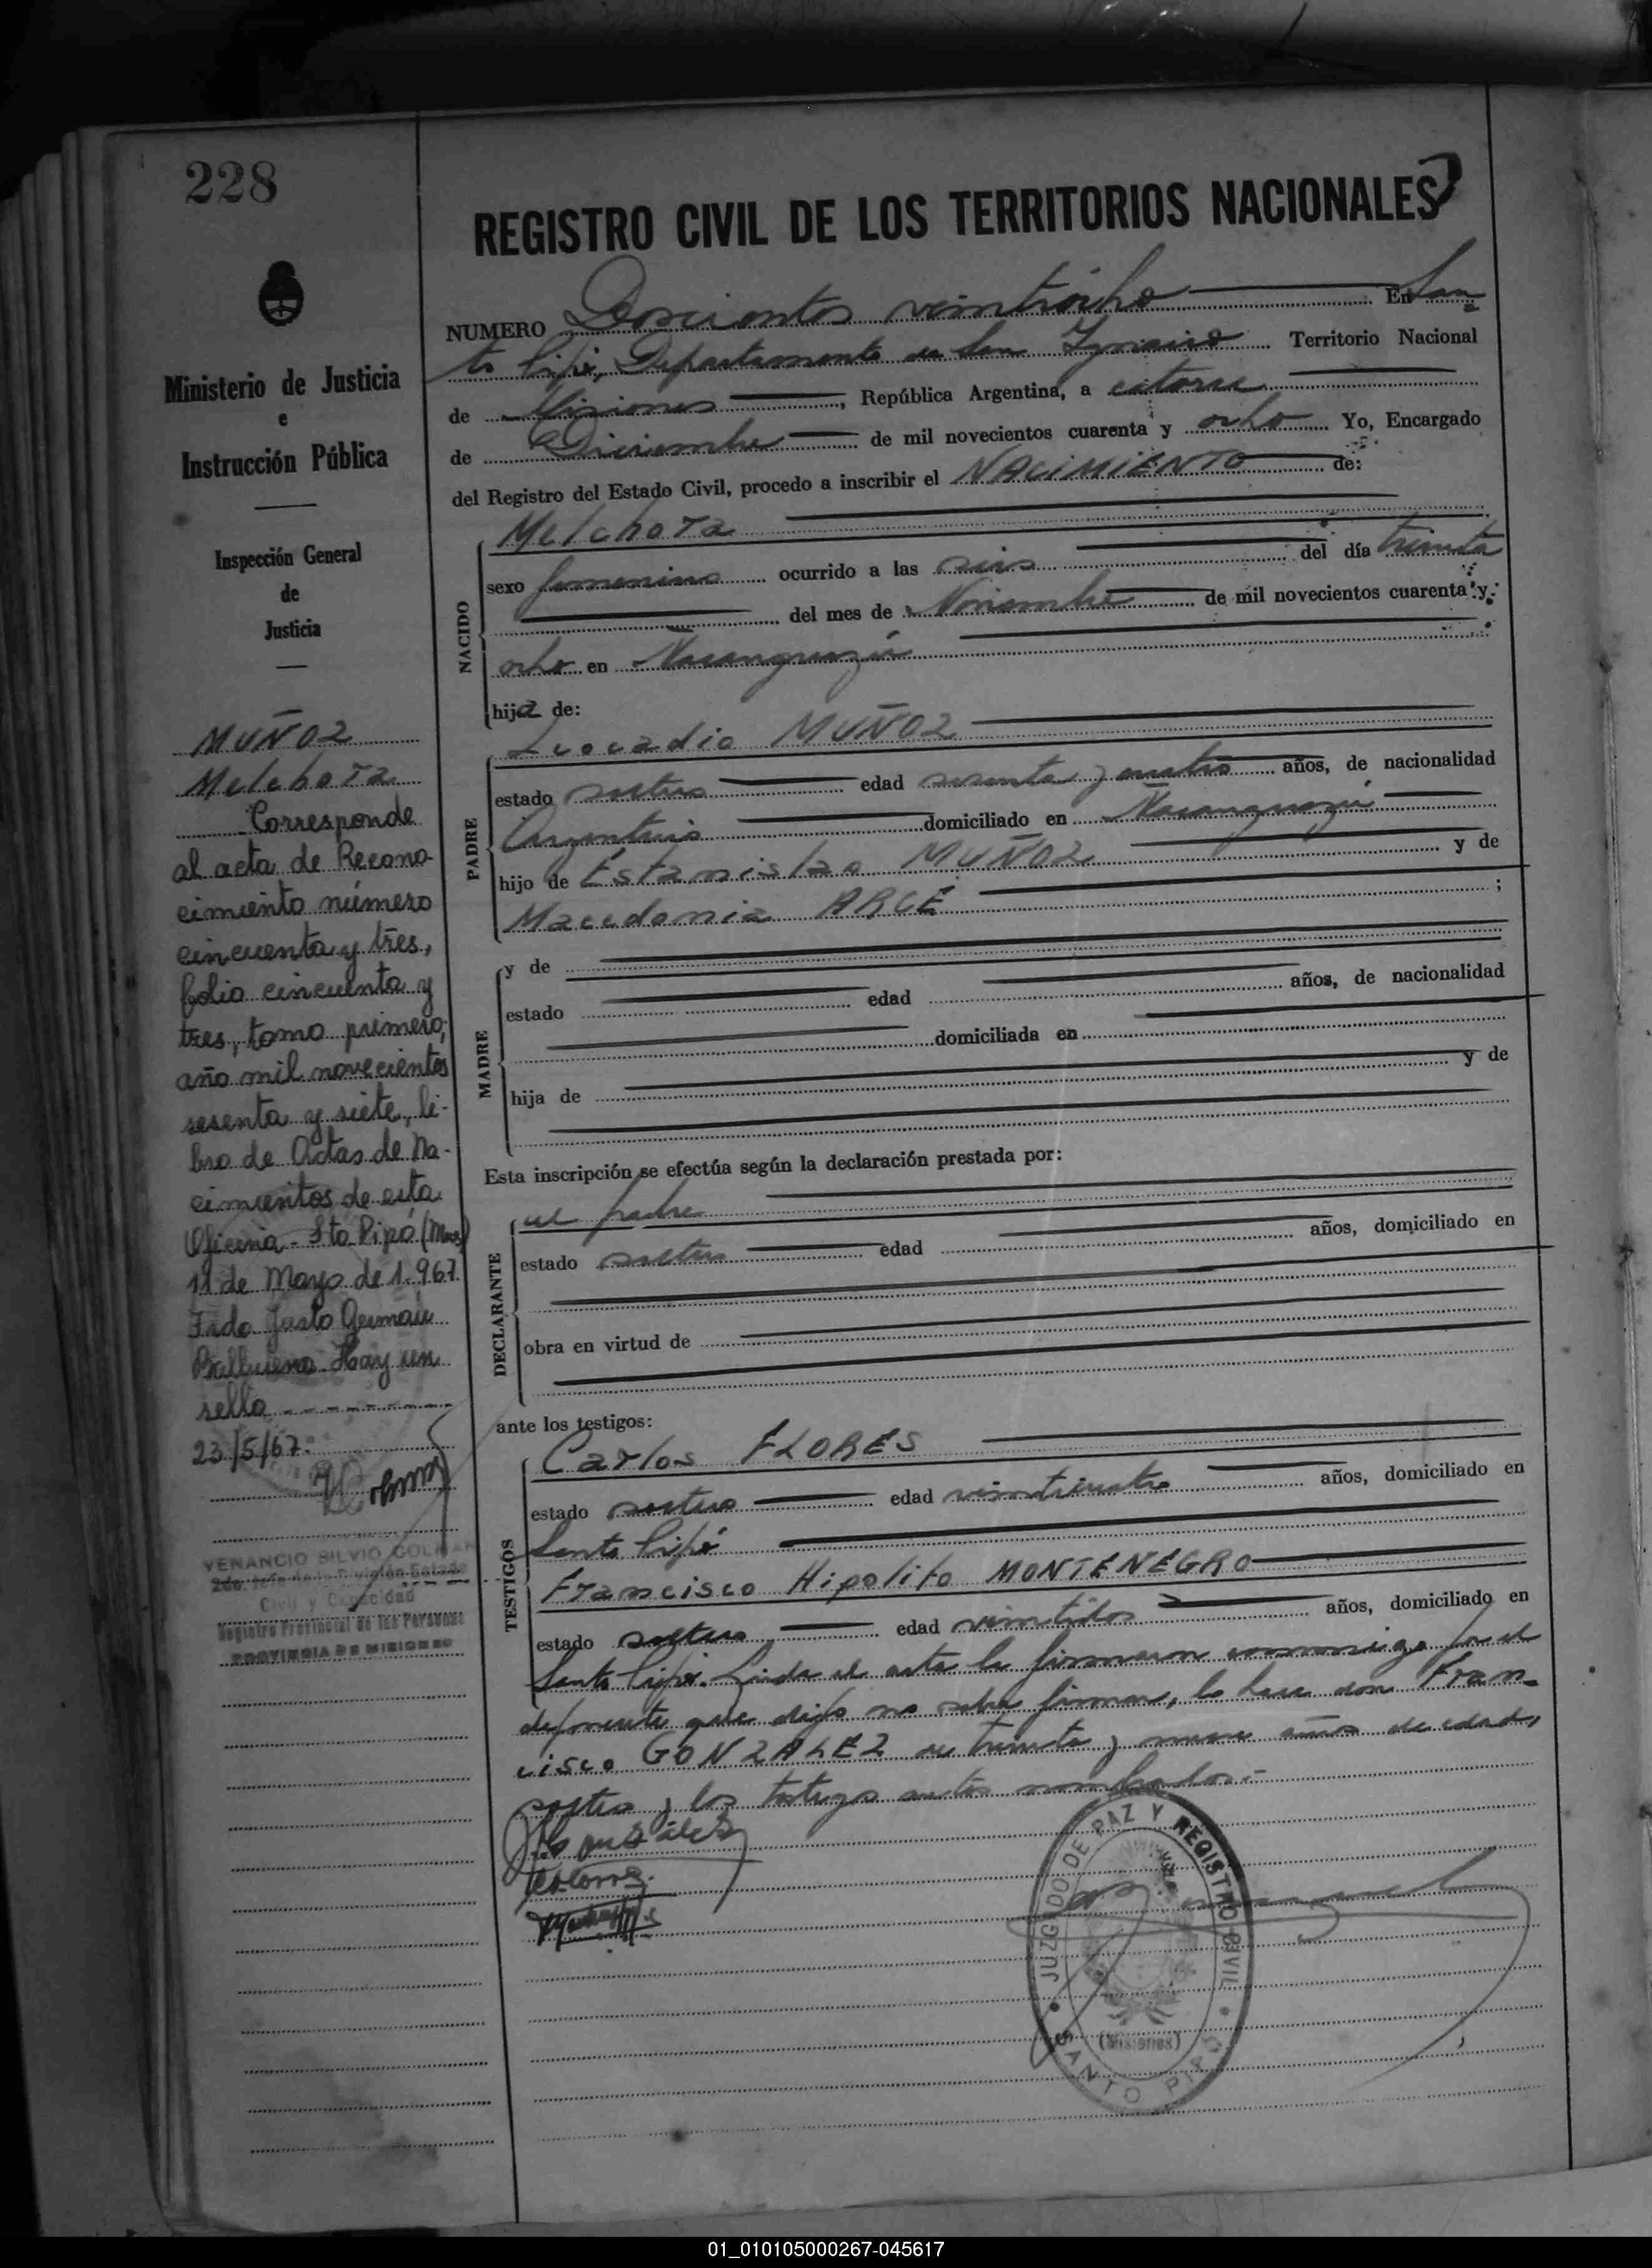 228
Ministerio de Justicia
e
Instrucción Pública
Inspección General
de
Justicia
MUÑOZ
Melchora
Corresponde
al acta de Recono-
cimiento número
cincuenta y tres,
folio cincuenta y
tres, tomo primero,
año mil novecientos
sesenta y siete, li-
bro de Actas de Na-
cimientos de esta
Oficina - Sto Pipó (Mnes)
11 de Mayo de 1.967.
Fdo Justo Germán
Hay un
sello - - - - - - - - - -
23/5/67.
VENANCIO SILVIO COLMAN
2do. Jefe de la División Estado
Civil y Capacidad
Registro Provincial de las Personas
PROVINCIA DE MISIONES
REGISTRO CIVIL DE LOS TERRITORIOS NACIONALES
NUMERO Doscientos veintiocho En San
to Pipó, Departamento de San Ignacio Territorio Nacional
de Misiones, República Argentina, a catorce
de Diciembre de mil novecientos cuarenta y ocho Yo, Encargado
del Registro del Estado Civil, procedo a inscribir el NACIMIENTO de:
NACIDO
Melchora
sexo femenino ocurrido a las seis del día treinta
del mes de Noviembre de mil novecientos cuarenta y
ocho en Ñacanguazú
hija de:
PADRE
Leocadio MUÑOZ
estado soltero edad sesenta y cuatro años, de nacionalidad
Argentino domiciliado en Ñacanguazú
hijo de Estanislao MUÑOZ y de
Macedonia ARCE ;
MADRE
y de
estado edad años, de nacionalidad
domiciliada en
hija de y de
Esta inscripción se efectúa según la declaración prestada por:
DECLARANTE
el padre
estado soltero edad años, domiciliado en
obra en virtud de
ante los testigos:
TESTIGOS
Carlos FLORES
estado soltero edad veinticuatro años, domiciliado en
Santo Pipó
Francisco Hipolito MONTENEGRO
estado soltero edad veintidos años, domiciliado en
Santo Pipó. Leida el acta la firmaron conmigo por el
deponente que dijo no saber firmar, lo hace don Fran-
cisco GONZALEZ de treinta y nueve años de edad,
soltero y los testigos antes nombrados.-
JUZGADO DE PAZ Y REGISTRO CIVIL
(Misiones)
SANTO PIPÓ
01_010105000267-045617